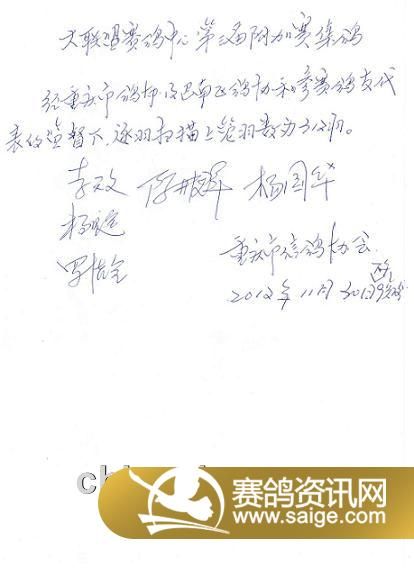 大联盟赛鸽中心第三届附加赛集鸽
经重庆市鸽协及巴南区鸽协和参赛鸽友代
表的监督下,逐羽扫描上笼羽数为
李政 杨国华
杨
罗
重庆市信鸽协会
2012年11月30日
赛鸽资讯网
www.saige.com